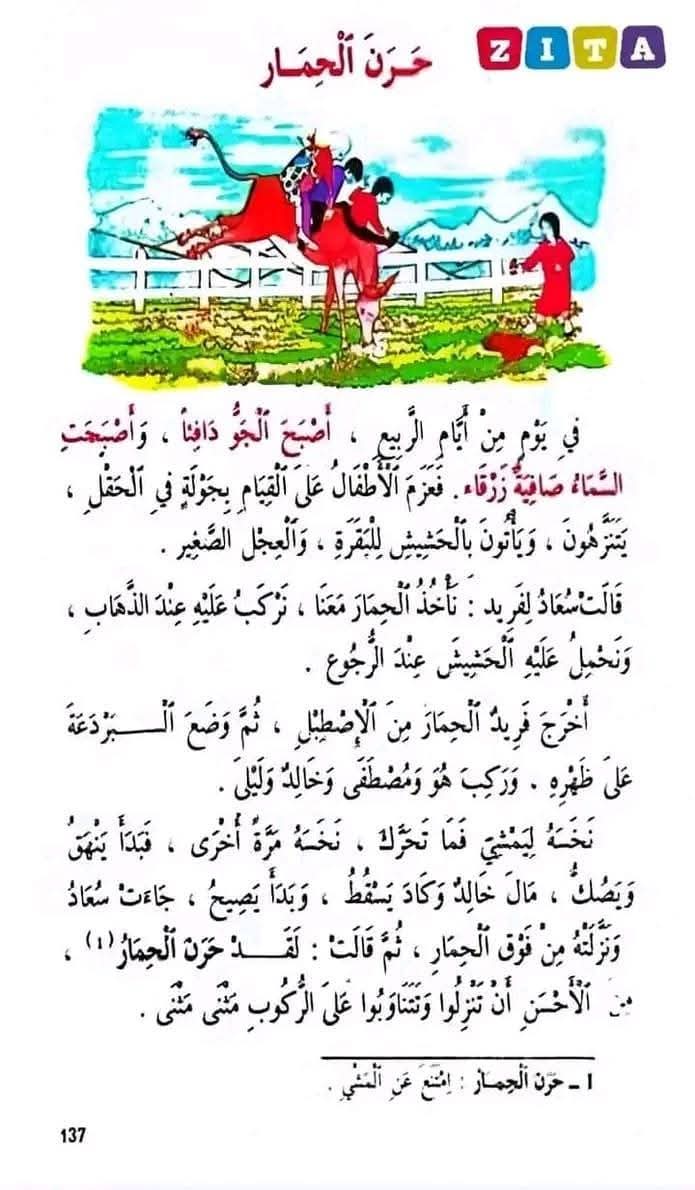 ZITA
حَرَنَ ٱلْحِمَار
في يَوْمٍ مِنْ أَيَّامِ الرَّبِيعِ ، أَصْبَحَ ٱلْجَوُّ دَافِئاً ، وَأَصْبَحَتِ
السَّمَاءُ صَافِيَةً زَرْقَاء . فَعَزَمَ ٱلْأَطْفَالُ عَلَى ٱلْقِيَامِ بِجَوْلَةٍ فِي ٱلْحَقْلِ ،
يَتَنَزَّهُونَ ، وَيَأْتُونَ بِٱلْحَشِيشِ لِلْبَقَرَةِ ، وَٱلْعِجْلِ الصَّغِير .
قَالَتْ سُعَادُ لِفَرِيد : نَأْخُذُ ٱلْحِمَارَ مَعَنَا ، نَرْكَبُ عَلَيْهِ عِنْدَ الذَّهَابِ ،
وَنَحْمِلُ عَلَيْهِ ٱلْحَشِيشَ عِنْدَ الرُّجُوع .
أَخْرَجَ فَرِيدٌ ٱلْحِمَارَ مِنَ ٱلْإِصْطَبْلِ ، ثُمَّ وَضَعَ ٱلْبَرْدَعَةَ
عَلَى ظَهْرِهِ . وَرَكِبَ هُوَ وَمُصْطَفَى وَخَالِدٌ وَلَيْلَى .
نَخَسَهُ لِيَمْشِيَ فَمَا تَحَرَّكَ ، نَخَسَهُ مَرَّةً أُخْرَى ، فَبَدَأَ يَنْهَقُ
وَيَصُكُّ ، مَالَ خَالِدٌ وَكَادَ يَسْقُطُ ، وَبَدَأَ يَصِيحُ ، جَاءَتْ سُعَادُ
وَنَزَّلَتْهُ مِنْ فَوْقِ ٱلْحِمَارِ ، ثُمَّ قَالَتْ : لَقَدْ حَرَنَ ٱلْحِمَارُ (1) ،
مِنَ ٱلْأَحْسَنِ أَنْ تَنْزِلُوا وَتَتَنَاوَبُوا عَلَى الرُّكُوبِ مَثْنَى مَثْنَى .
1 ـ حَرَنَ ٱلْحِمَارُ : اِمْتَنَعَ عَنِ ٱلْمَشْيِ .
137